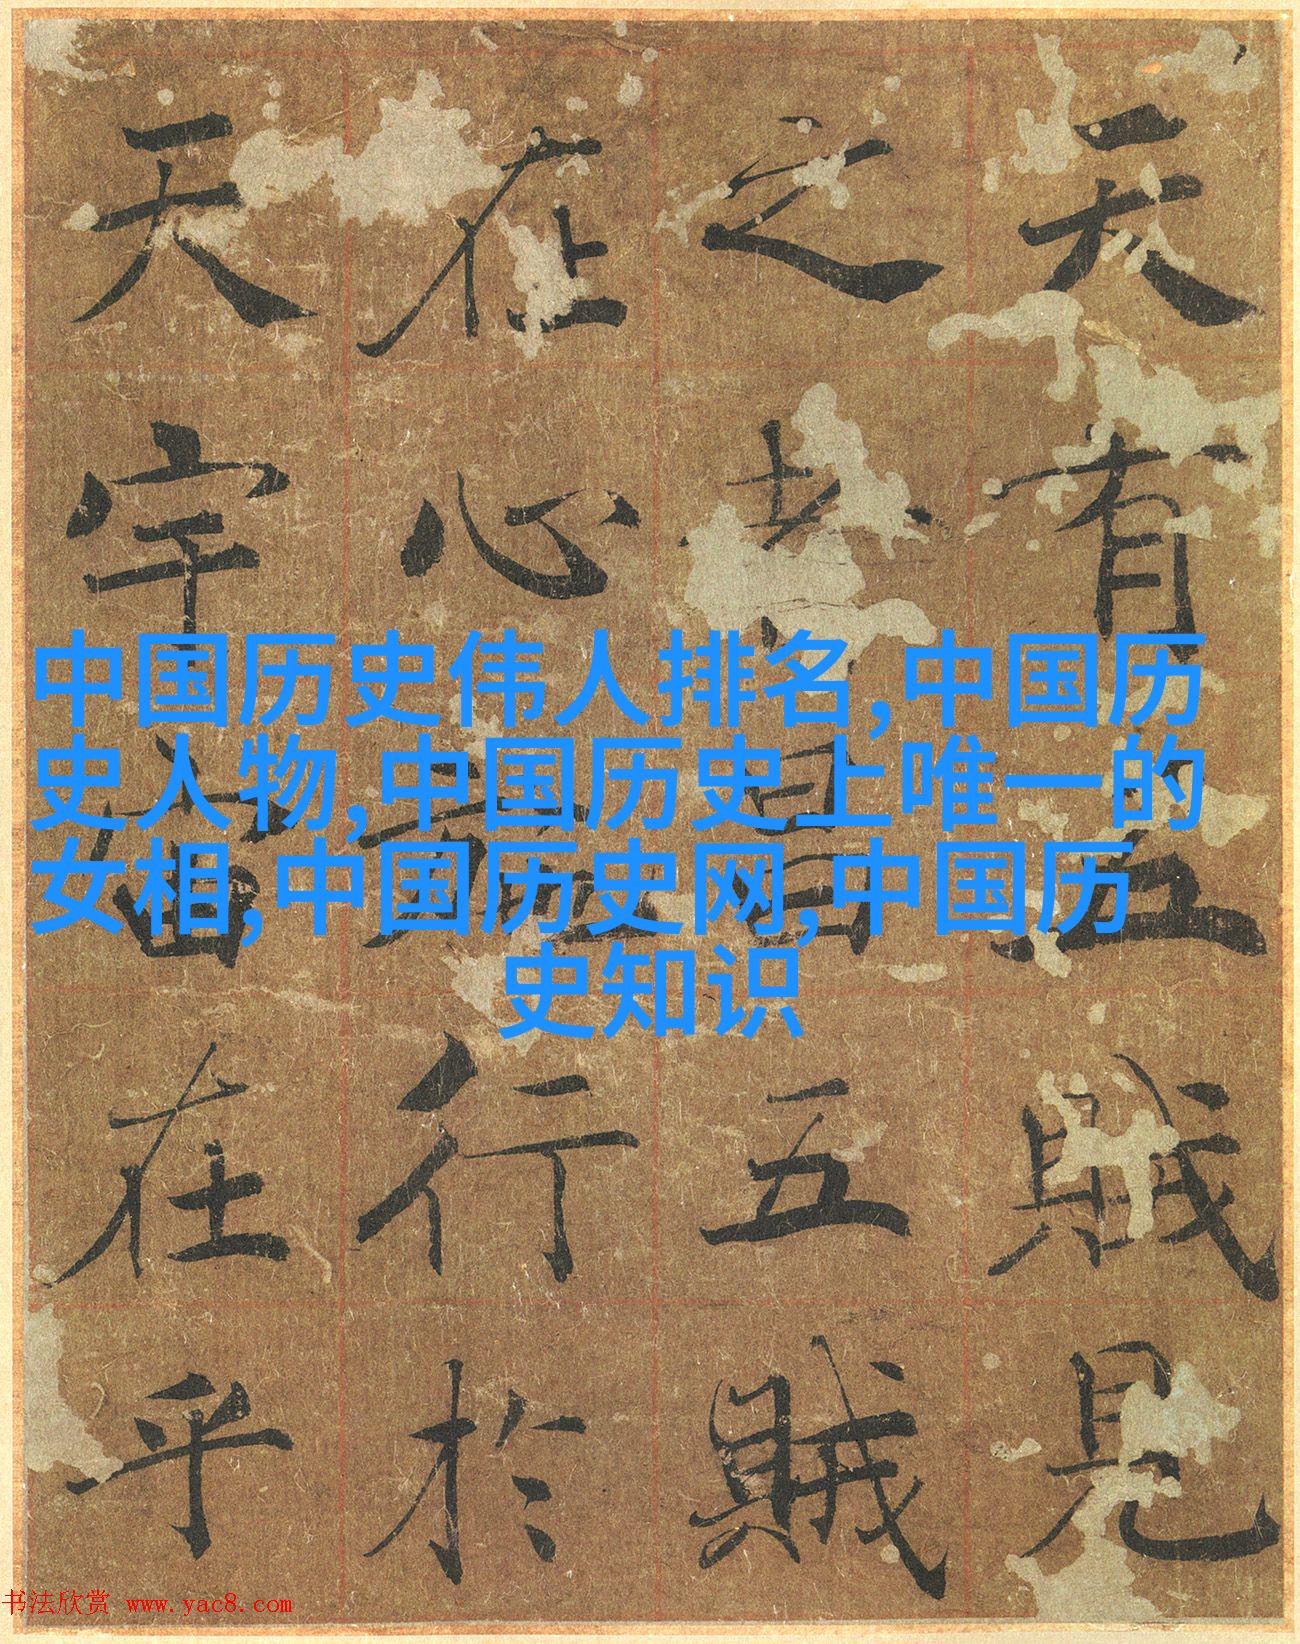 天有五賊見
之者昌五賊
在心施行於
天宇宙在乎
中国历史伟人排名,中国历
史人物,中国历史上唯一的
女相,中国历史网,中国历
史知识
书法欣赏 www.yac8.com